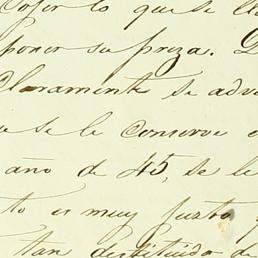 Cojer lo que se ll
poner su preza. D
Claramente se adve
a se le Conserve e
año de 45, se le
to es muy justo y
tan destituido de